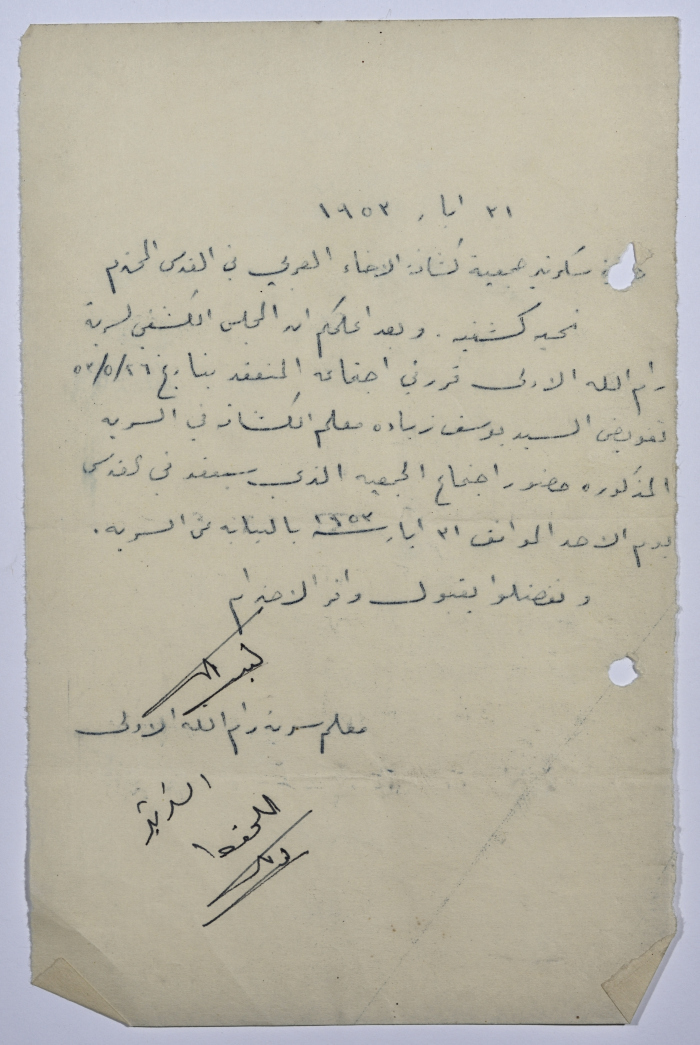 ٣١ ايار ١٩٥٣
سكرتير جمعية كشافة الاخاء العربي في القدس المحترم
تحيه كشفيه . وبعد اعلمكم ان المجلس الكشفي لسرية
رام الله الاولى قرر في اجتماعه المنعقد بتاريخ ٢٦/٥/٥٣
تفويض السيد يوسف زياده معلم الكشافة في السريه
المذكوره حضور اجتماع الجمعيه الذي سيعقد في القدس
يوم الاحد الموافق ٣١ ايار سنة ١٩٥٣ بالنيابه عن السريه .
وتفضلوا بقبول وافر الاحترام
معلم سرية رام الله الاولى